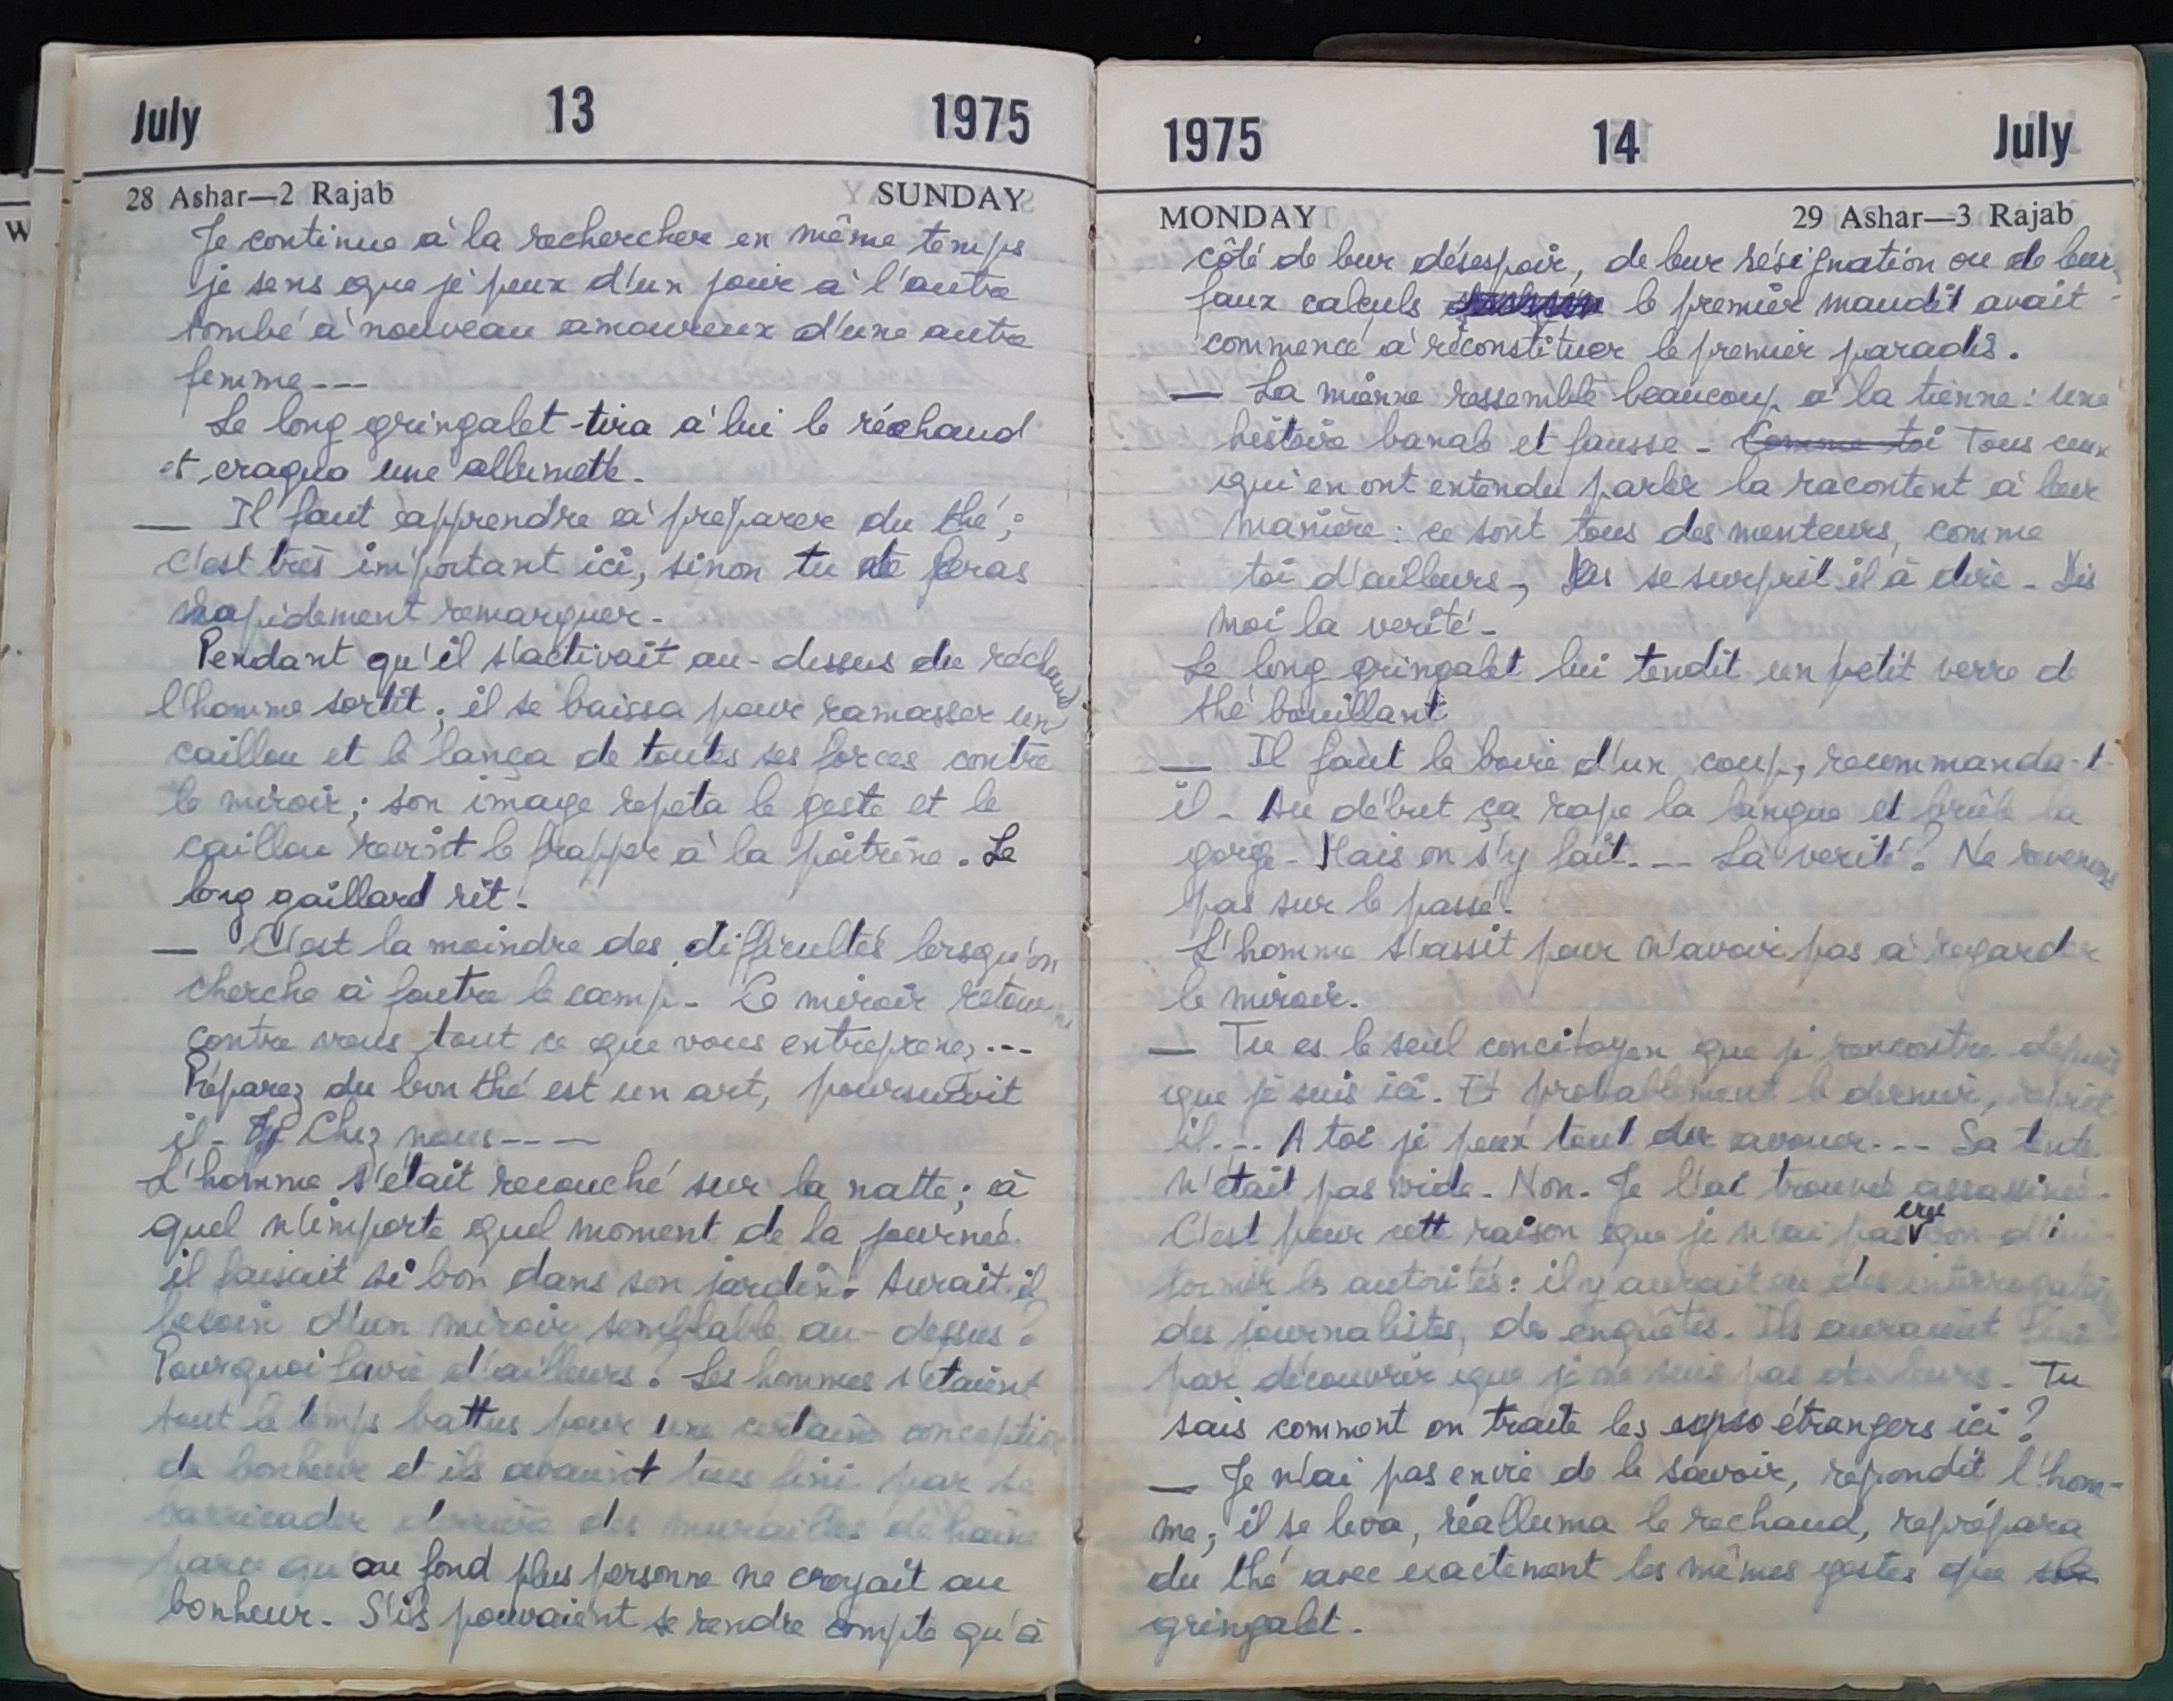 July 13 1975
28 Ashar—2 Rajab SUNDAY
Je continue à la rechercher en même temps
je sens que je peux d'un jour à l'autre
tombé à nouveau amoureux d'une autre
femme---
Le long gringalet tira à lui le réchaud
et craqua une allumette.
— Il faut apprendre à préparer du thé ;
C'est très important ici, sinon tu te feras
rapidement remarquer.
Pendant qu'il s'activait au-dessus du réchaud
l'homme sortit ; il se baissa pour ramasser un
caillou et le lança de toutes ses forces contre
le miroir ; son image répéta le geste et le
caillou revint le frapper à la poitrine. Le
long gaillard rit.
— C'est la moindre des difficultés lorsqu'on
cherche à foutre le camp. Le miroir retourne
contre vous tout ce que vous entreprenez...
Préparez du bon thé est un art, poursuivit
il. Chez nous----
L'homme s'était recouché sur la natte ; à
quel n'importe quel moment de la journée
il faisait si bon dans son jardin. Aurait-il
besoin d'un miroir semblable au-dessus ?
Pourquoi d'ailleurs ? Les hommes s'étaient
tout le temps battus pour une certaine conception
de bonheur et ils avaient tous fini par se
barricader derrière des murailles de haine
parce qu'au fond plus personne ne croyait au
bonheur. S'ils pouvaient se rendre compte qu'à
1975 14 July
MONDAY 29 Ashar—3 Rajab
côté de leur désespoir, de leur résignation ou de leur
faux calculs le premier maudit avait
commencé à réconstituer le premier paradis.
— La mienne ressemble beaucoup à la tienne : une
histoire banale et fausse. Comme toi Tous ceux
qui en ont entendu parler la racontent à leur
manière : ce sont tous des menteurs, comme
toi d'ailleurs, se surprit il à dire. Dis
moi la verité.
Le long gringalet lui tendit un petit verre de
thé bouillant
— Il faut le boire d'un coup, recommanda-t-
il. Au début ça rape la langue et brûle la
gorge. Mais on s'y fait... La verité ? Ne revenons
pas sur le passé.
L'homme s'assit pour n'avoir pas à regarder
le miroir.
— Tu es le seul concitoyen que je rencontre depuis
que je suis ici. Et probablement le dernier, reprit
il... A toi je peux tout avouer... Sa tente
n'était pas vide. Non. Je l'ai trouvée assassinée.
C'est pour cette raison que je n'ai pas cru bon d'in-
former les autorités : il y aurait eu des interrogatoires
des journalistes, des enquêtes. Ils auraient fini
par découvrir que je ne suis pas des leurs. Tu
sais comment on traite les étrangers ici ?
— Je n'ai pas envie de le savoir, répondit l'hom-
me ; il se leva, réalluma le rechaud, reprépara
du thé avec exactement les mêmes gestes que
gringalet.